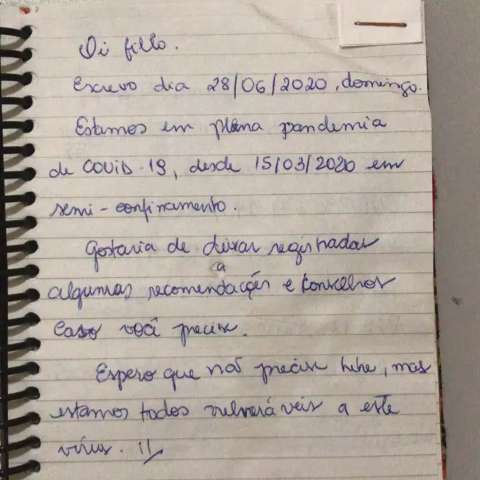 Oi filho.
Escrevo dia 28/06/2020, domingo.
Estamos em plena pandemia
de COVID-19, desde 15/03/2020 em
semi-confinamento.
Gostaria de deixar registradas
algumas recomendações e conselhos
caso você precise.
Espero que não precise bebe, mas
estamos todos vulneráveis a este
vírus. !!